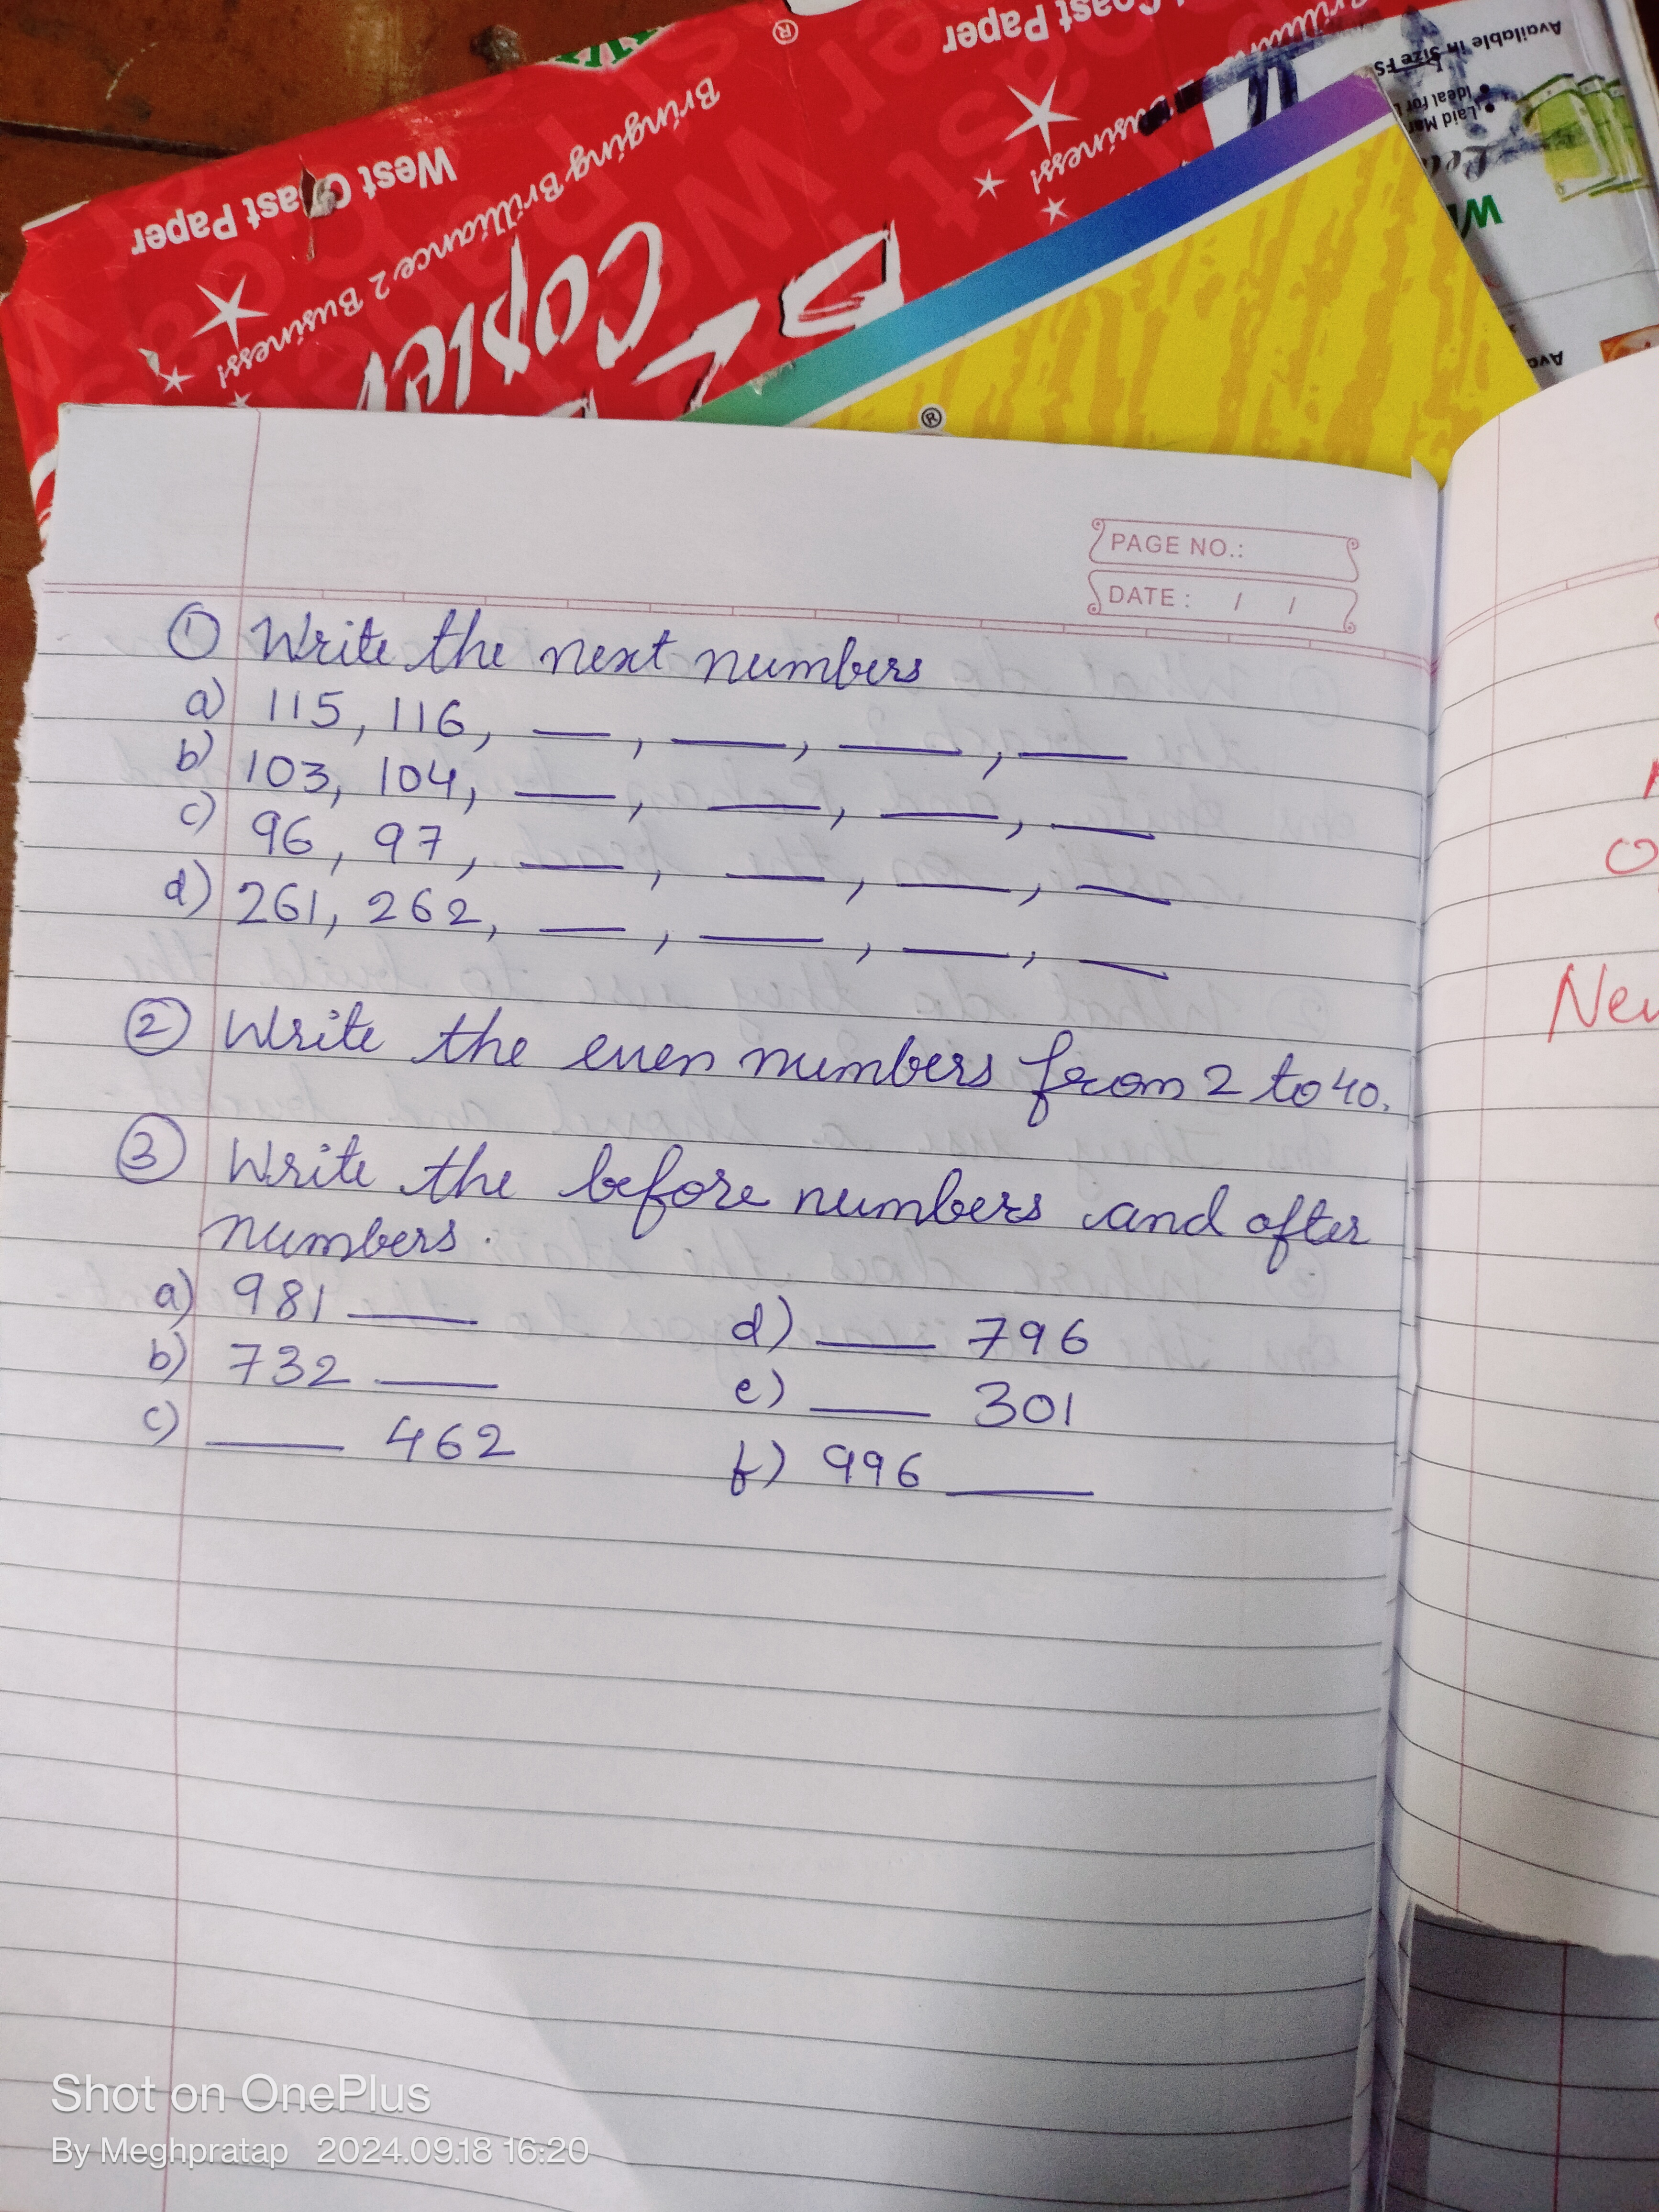 West Coast Paper
Coast Paper
Bringing Brilliance 2 Business!
Business!
Copier
Available in Size FS
Ideal for
Laid Mar
®
®
PAGE NO.:
DATE : / /
① Write the next numbers
a) 115, 116, __, __, __, __
b) 103, 104, __, __, __, __
c) 96, 97, __, __, __, __
d) 261, 262, __, __, __, __
② Write the even numbers from 2 to 40.
③ Write the before numbers and after
numbers.
a) 981 __ d) __ 796
b) 732 __ e) __ 301
c) __ 462 f) 996 __
Shot on OnePlus
By Meghpratap 2024.09.18 16:20